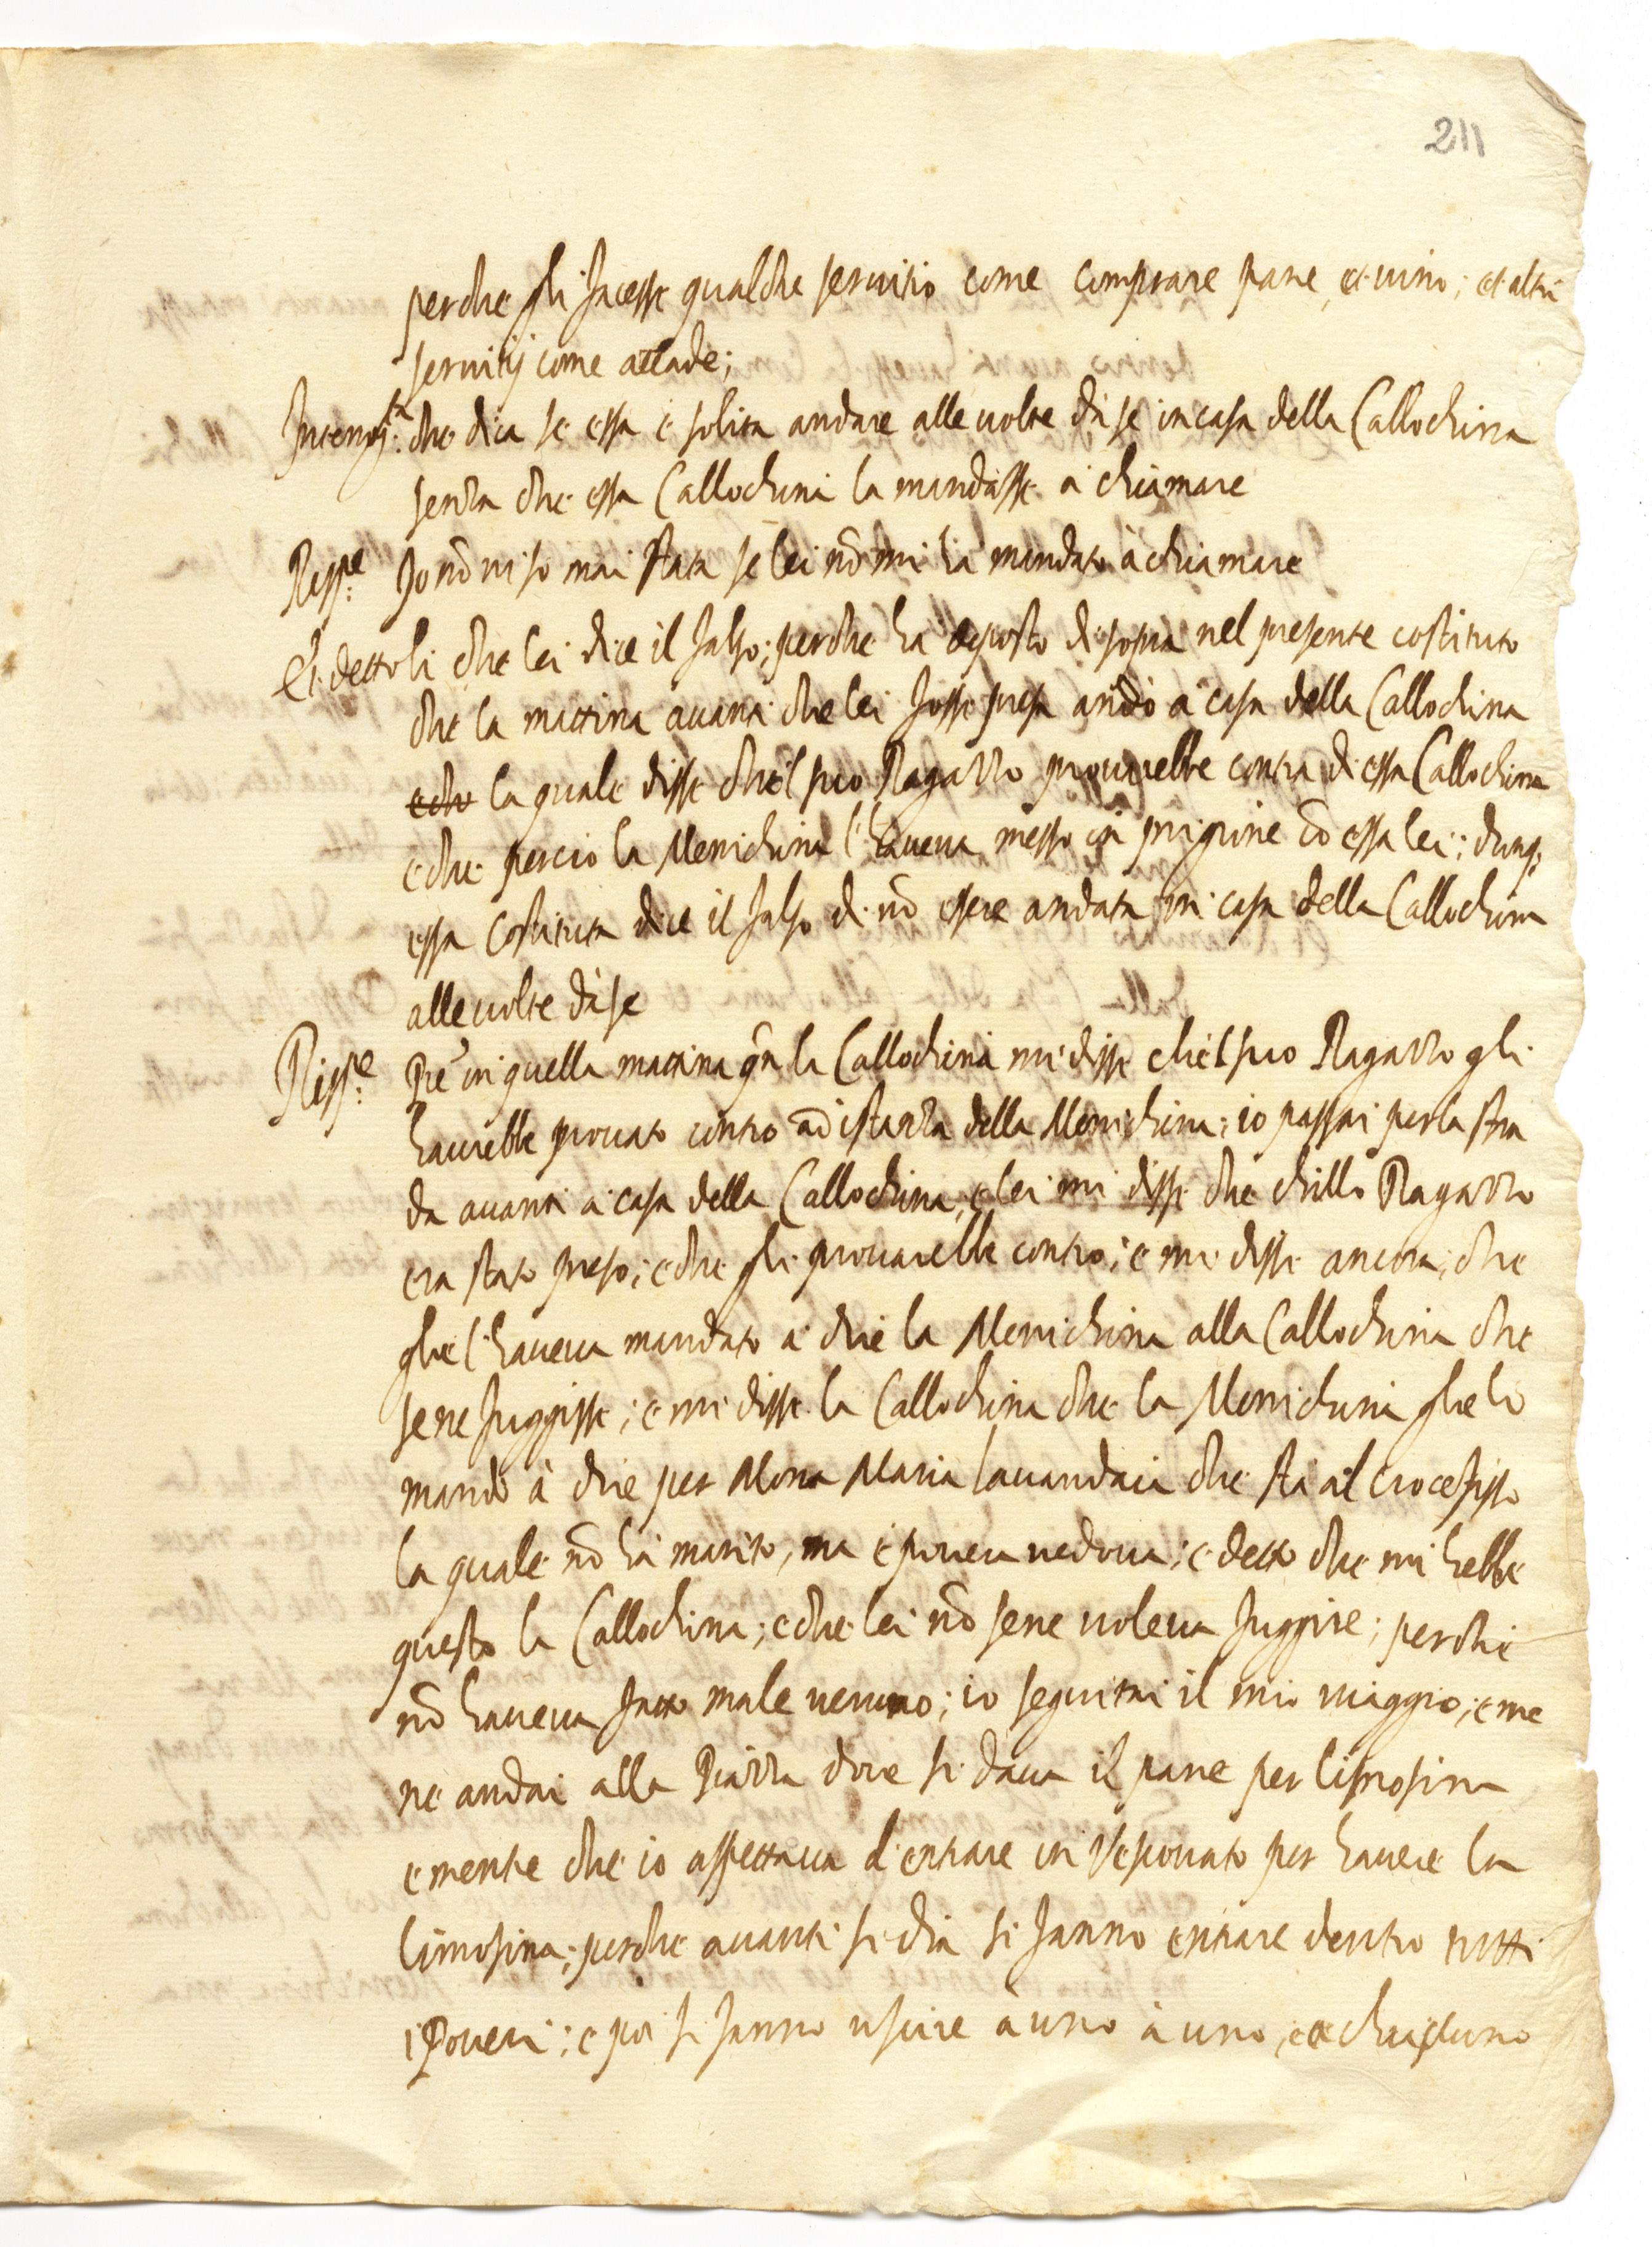 211
perche gli facesse qualche seruitio come comprare pane, et uino; et altri
seruitij come accade;
Interrog:ta che dica se essa è solita andare alle uolte dà se in casa della Callochina
senza che essa Callochina la mandasse à chiamare
Risp:e Io nō ui so mai stata se lei nō mi hà mandato à chiamare
Et dettoli che lei dice il falso; perche hà deposto di sopra nel presente costituto
che la mattina auanti che lei fosse presa andò à casa della Callochina
la quale disse che'l suo Ragazzo prouarebbe contra di essa Callochina
e che perciò la Menichina l'haueua messo in prigione cō essa lei; dunq;
essa Costituta dice il falso di nō essere andata in casa della Callochina
alle uolte dà se
Risp:e Pe' in quella mattina qñ la Callochina mi disse che'l suo Ragazzo gli
haurebbe prouato contro ad istanza della Menichina; io passai per la stra
da auanti à casa della Callochina, e lei mi disse che chillo Ragazzo
era stato preso; e che gli prouarebbe contro; e mi disse ancora, che
glie l'haueua mandato à dire la Menichina alla Callochina che
se ne fuggisse; e mi disse la Callochina che la Menichina glie lo
mandò à dire per Mona Maria lauandaia che stà al Crocefisso
la quale nō hà marito, ma è pouera uedoua; e detto che mi hebbe
questo la Callochina; e che lei nō se ne uoleua fuggire; perche
nō haueua fatto male ueruno; io seguitai il mio uiaggio; e me
ne andai alla Piazza doue si daua il pane per limosina
e mentre che io aspettaua d'entrare in Vescouato per hauere la
limosina; perche auanti si dia si fanno entrare dentro tutti
i Poueri; e poi si fanno uscire à uno à uno, et a chiascuno